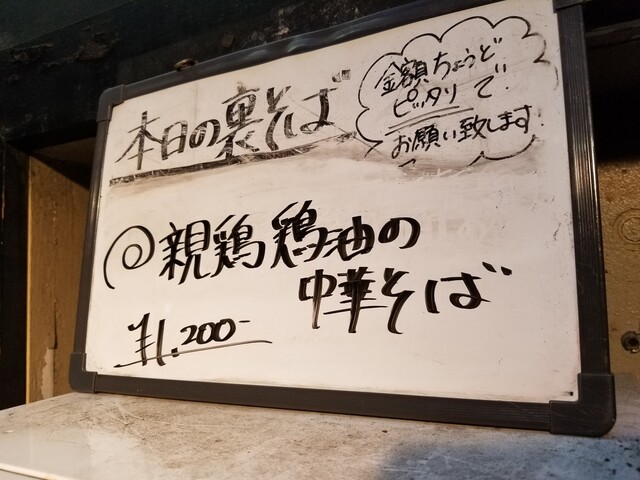 本日の裏そば
金額ちょうど
ピッタリで!
お願い致します!
親鶏鶏油の
中華そば
¥1.200-